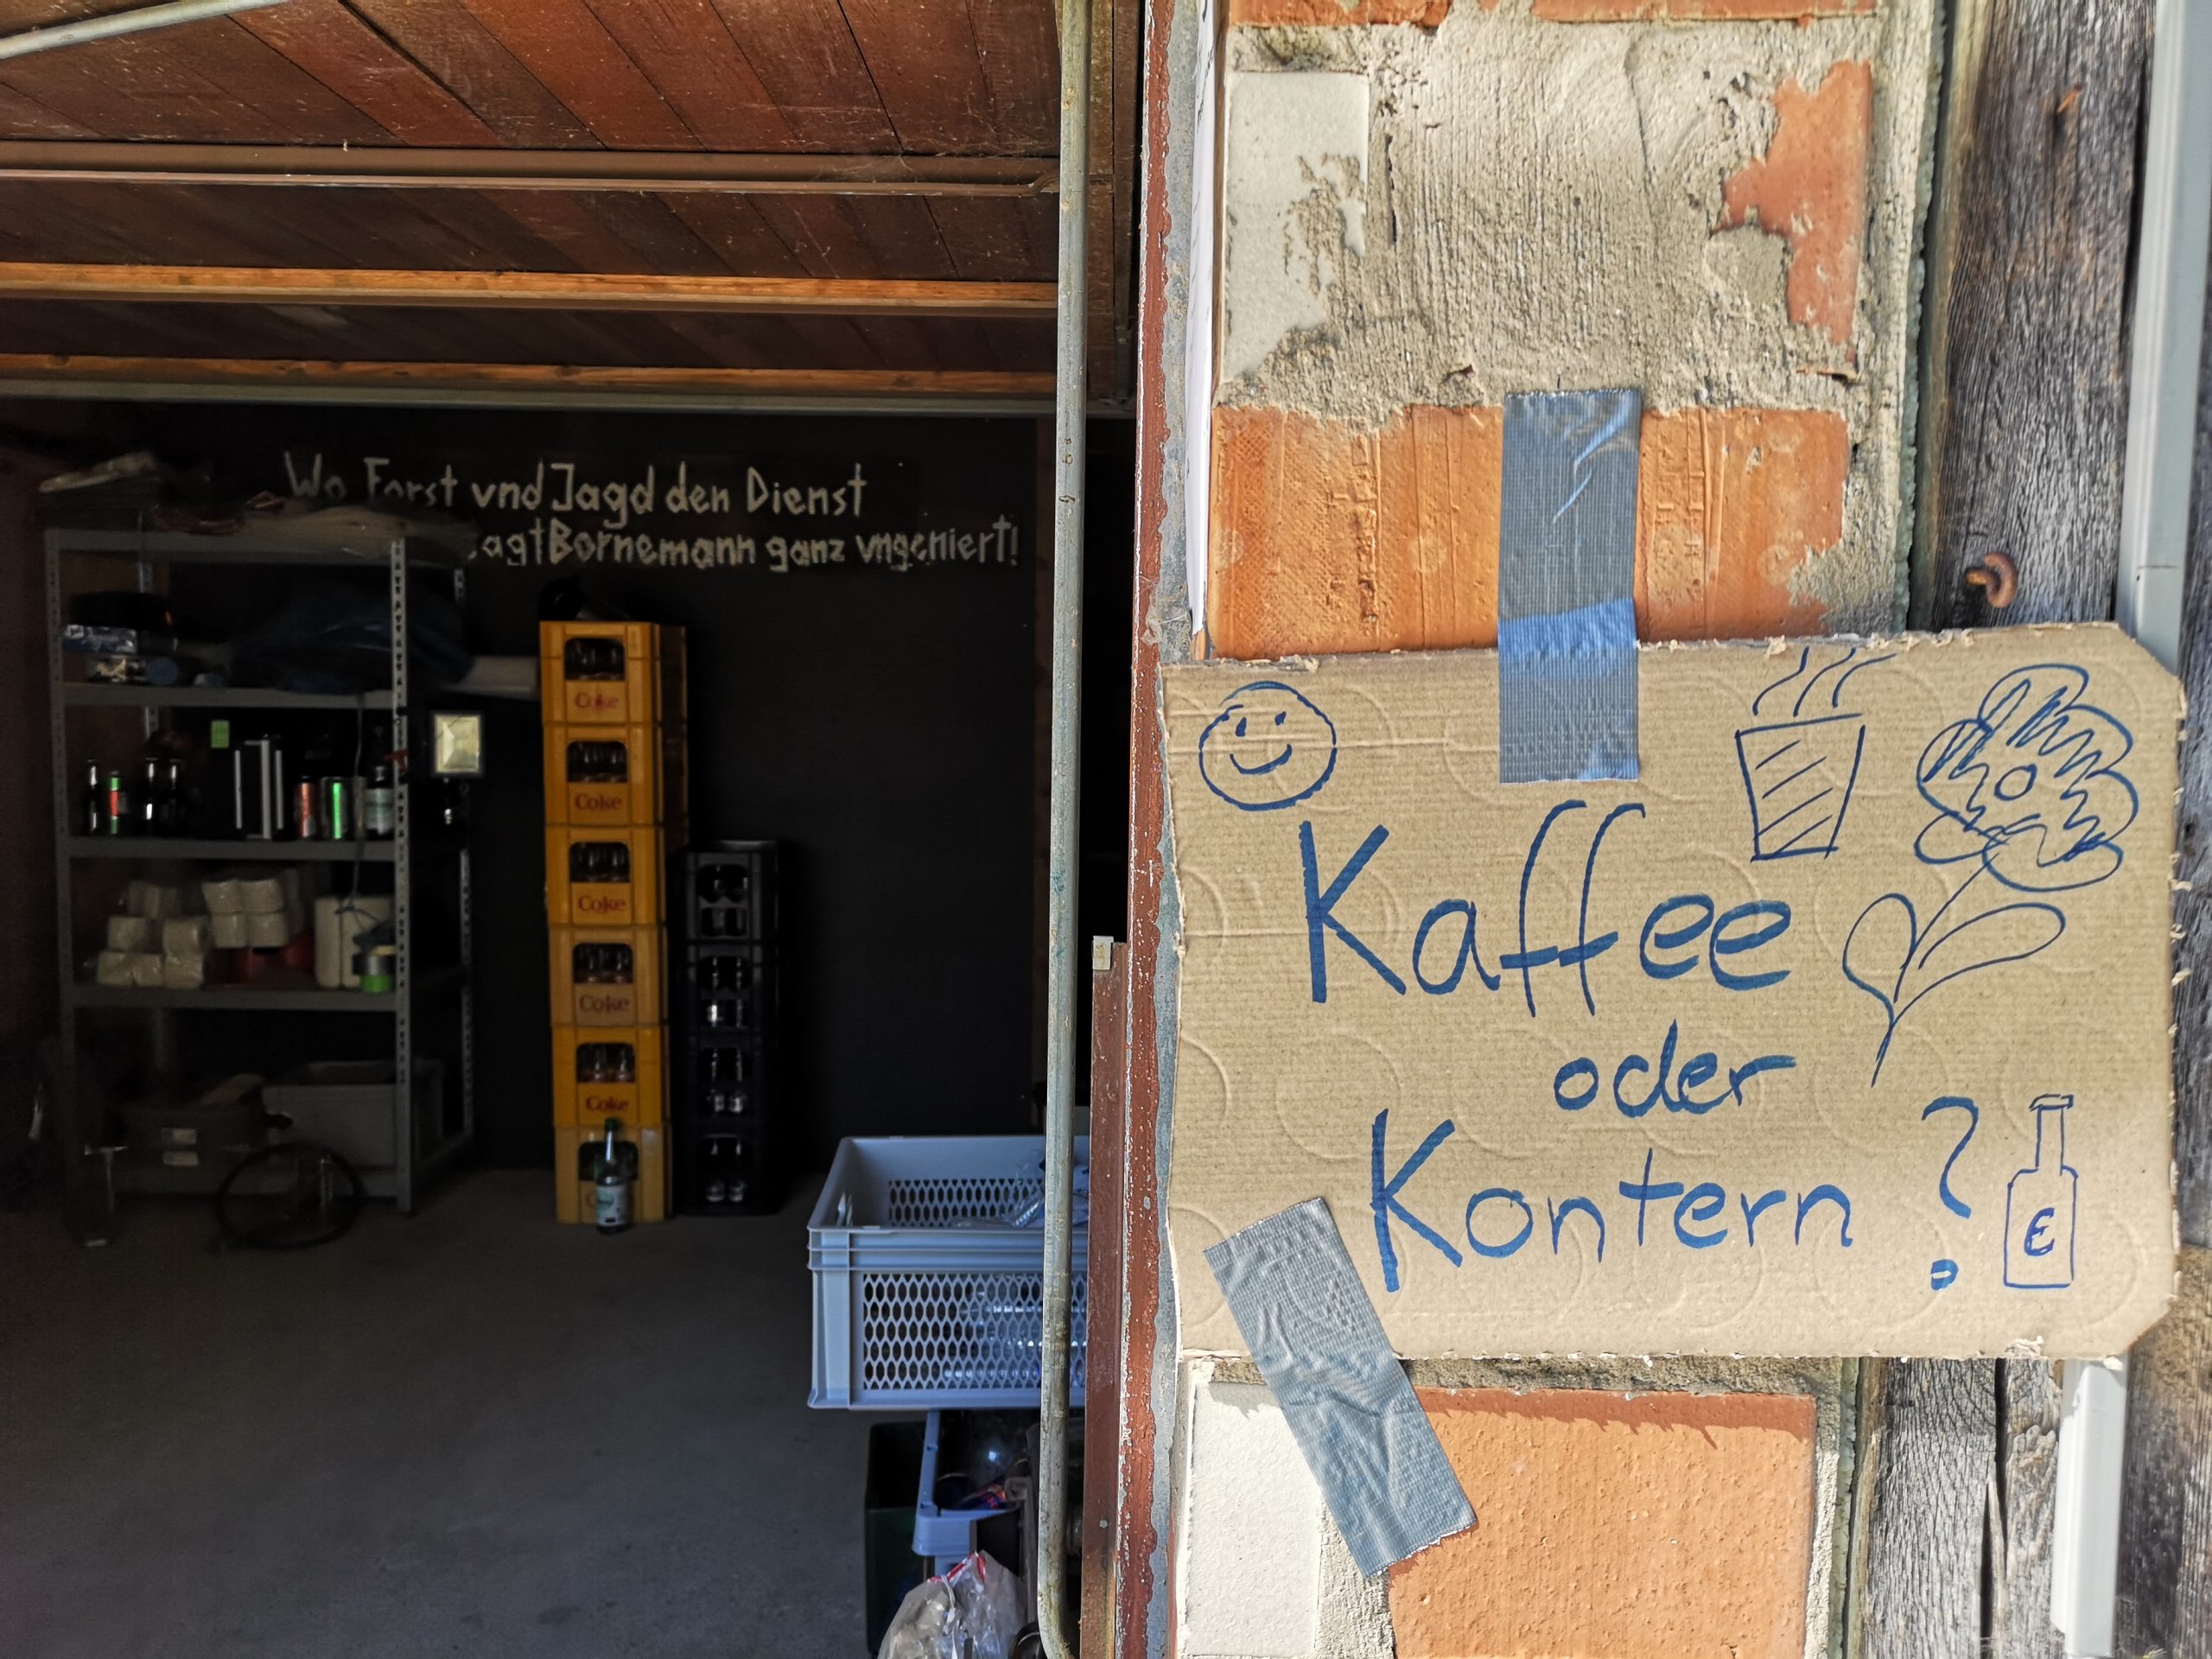 Wo Forst vnd Jagd den Dienst
agt Bornemann ganz vngeniert!
Coke
Coke
Coke
Coke
Coke
Kaffee
oder
Kontern ?
€